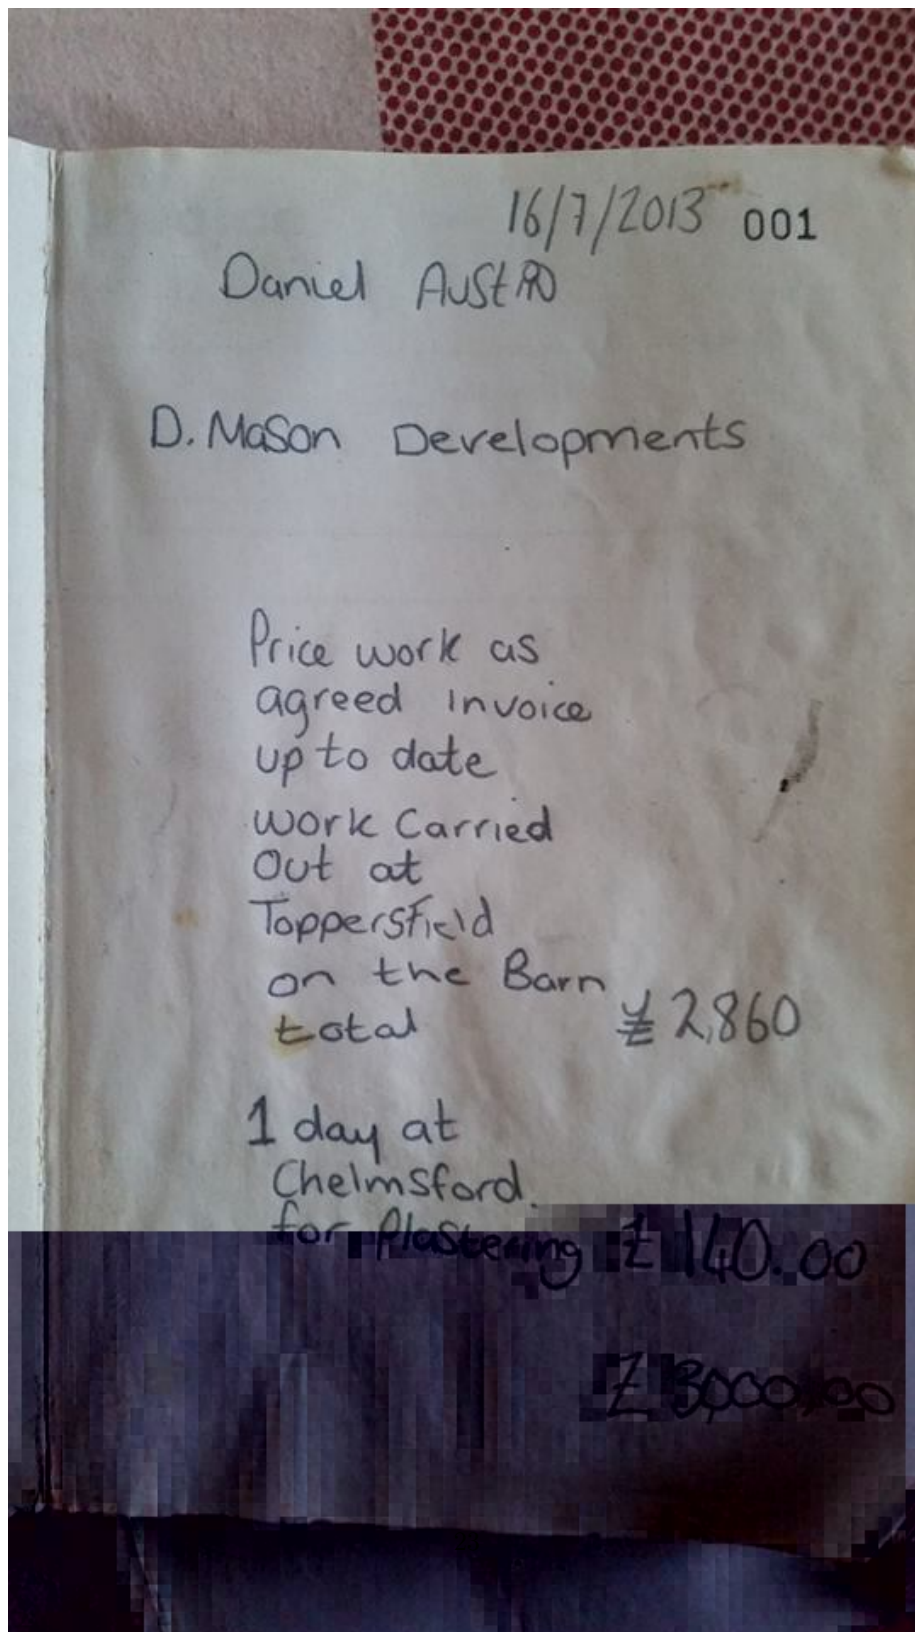 16/7/2013 001
Daniel
D. Mason Developments
Price work as
agreed invoice
up to date
work Carried
Out at
Toppersfield
on the Barn
total £2,860
1 day at
Chelmsford.
for Plastering £140.00
£3,000.00